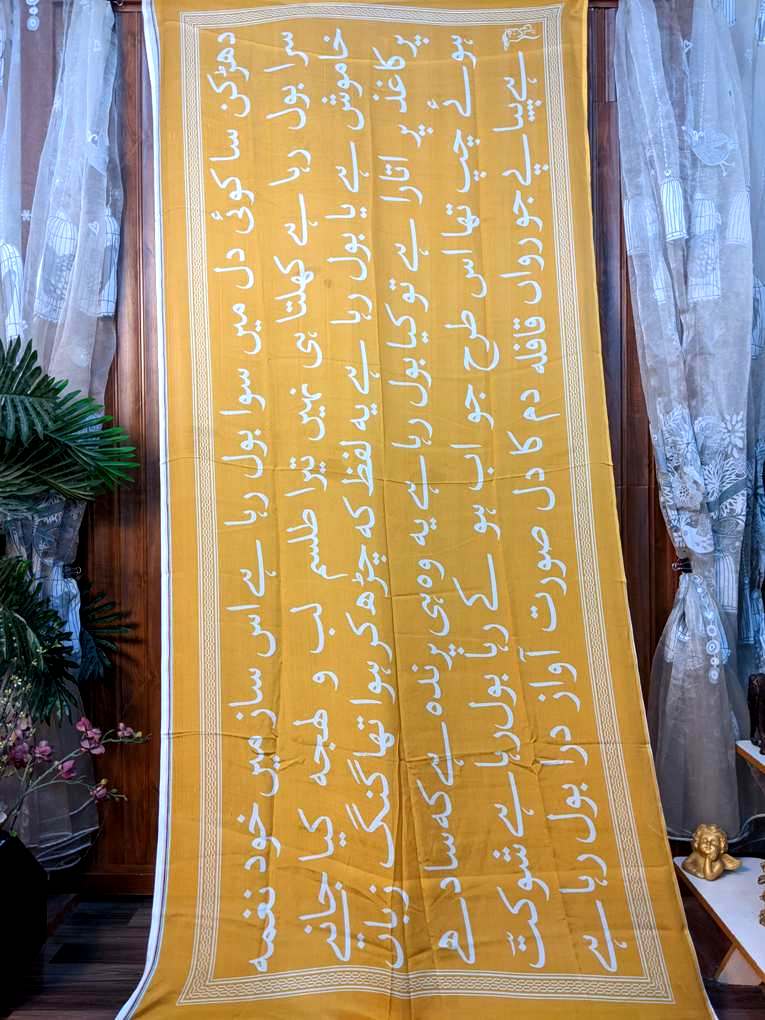 دھڑکن سا کوئی دل میں سوا بول رہا ہے اس ساز میں خود نغمہ
سرا بول رہا ہے کھلتا ہی نہیں تیرا طلسم لب و لھجہ کیا جانے
خاموش ہے یا بول رہا ہے یہ لفظ کہ چڑھ کر ہوا تھا گنگ زباں
پر کاغذ پر اتارا ہے تو کیا بول رہا ہے یہ وہ ہی پرندہ ہے کہ سادھے
ہوئے چپ تھا اس طرح جو اب ہو کے رہا بول رہا ہے شوکت
ہے پیاپے جو رواں قافلہ دم کا دل صورت آواز درا بول رہا ہے